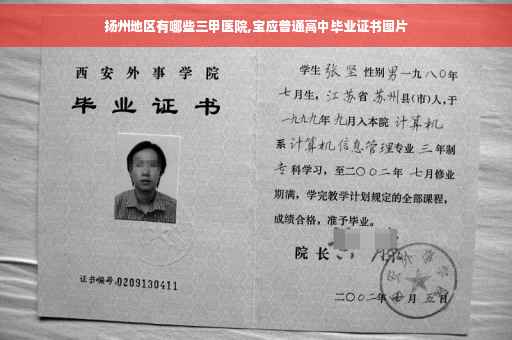 扬州地区有哪些三甲医院,宝应普通高中毕业证书图片
西安外事学院
毕业证书
证书编号:0209130411
学生 张坚 性别 男 一九八〇年
七月生，江苏省 苏州县(市)人，于
一九九九年 九月入本院 计算机
系 计算机信息管理专业 三 年制
专科学习，至二〇〇二年 七月修业
期满，学完教学计划规定的全部课程，
成绩合格，准予毕业。
院长
二〇〇二年 七月 五日